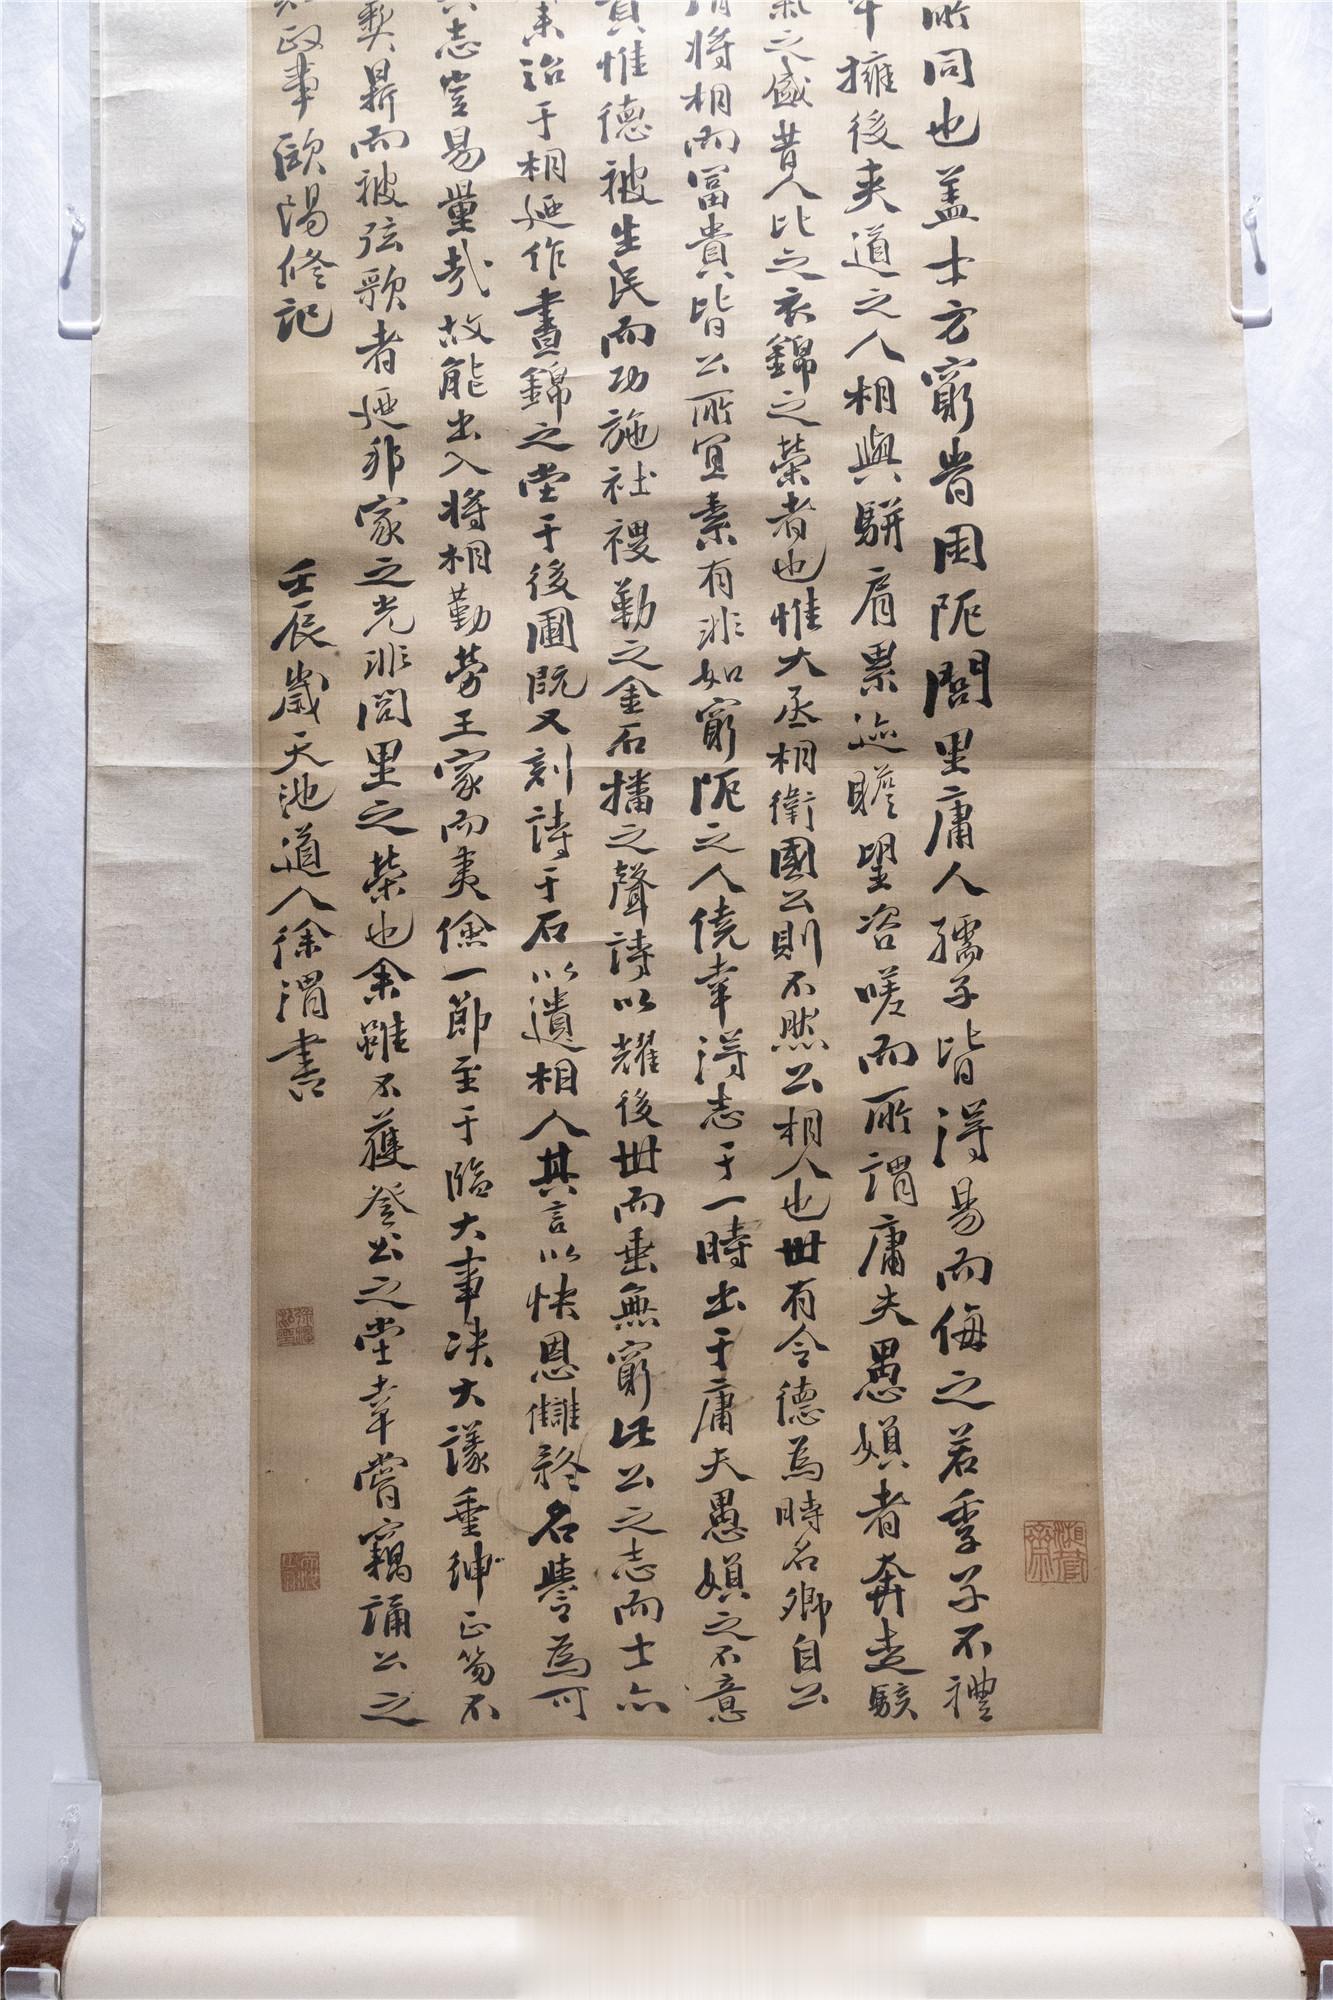 所同也盖士方窮時困阨閭里庸人孺子皆得易而侮之若季子不禮
擁後夾道之人相與駢肩累迹瞻望咨嗟而所謂庸夫愚婦者奔走駭
氣之盛昔人比之衣錦之榮者也惟大丞相衛國公則不然公相人也世有令德為時名卿自公
將相而冨貴皆公所宜素有非如窮阨之人僥幸得志于一時出于庸夫愚婦之不意
貴惟德被生民而功施社稷勒之金石播之聲詩以耀後世而垂無窮此公之志而士亦
來治于相廼作晝錦之堂于後圃既又刻詩于石以遺相人其言以快恩讎矜名譽為可
志豈易量哉故能出入將相勤勞王家而夷儉一節至于臨大事決大議垂紳正笏不
彝鼎而被弦歌者廼邦家之光非閭里之榮也余雖不獲登公之堂幸嘗竊誦公之
政事歐陽修記
壬辰歲天池道人徐渭書